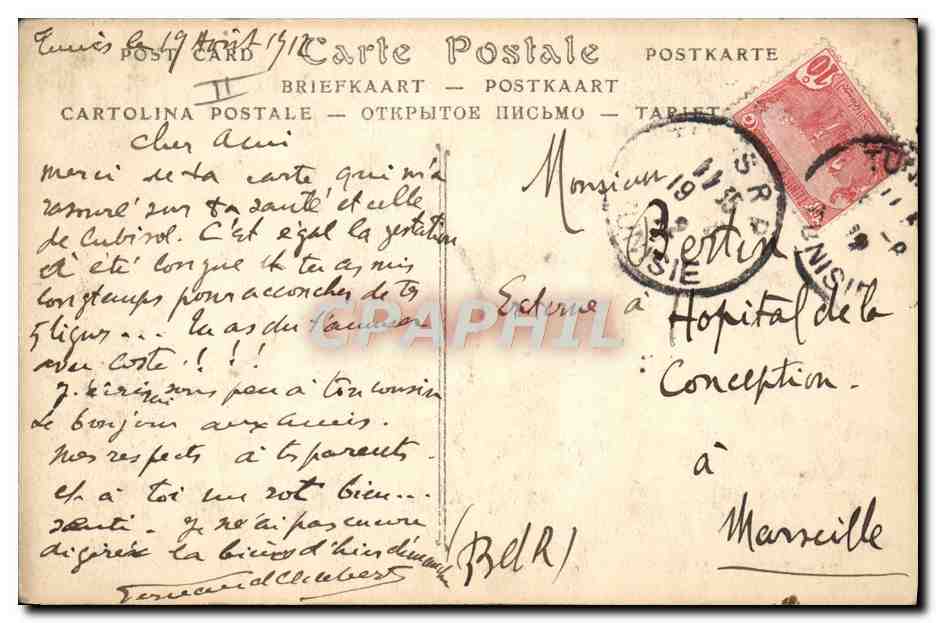 Tunis le 19 Août 1912
POST CARD Carte Postale POSTKARTE
II
BRIEFKAART — POSTKAART
CARTOLINA POSTALE — ОТКРЫТОЕ ПИСЬМО — TARJET
Cher Ami
Merci de ta carte qui m'a
rassuré sur ta santé et celle
de Cubisol. C'est égal la gestation
a été longue et tu as mis
longtemps pour accoucher de tes
5 lignes... Tu as du t'amuser
avec Coste ! ! !
J'écrirai sous peu à ton cousin
Le bonjour aux amis.
Mes respects à tes parents.
et à toi un rot bien...
senti. Je n'ai pas encore
digéré la bière d'hier dimanche
Fernand Aubert
(BeR)
Monsieur
Bertin
Externe à
Hopital de la
Conception.
à
Marseille
10
SRP
11 35
19
TUNISIE
TUNISIE
CPAPHIL